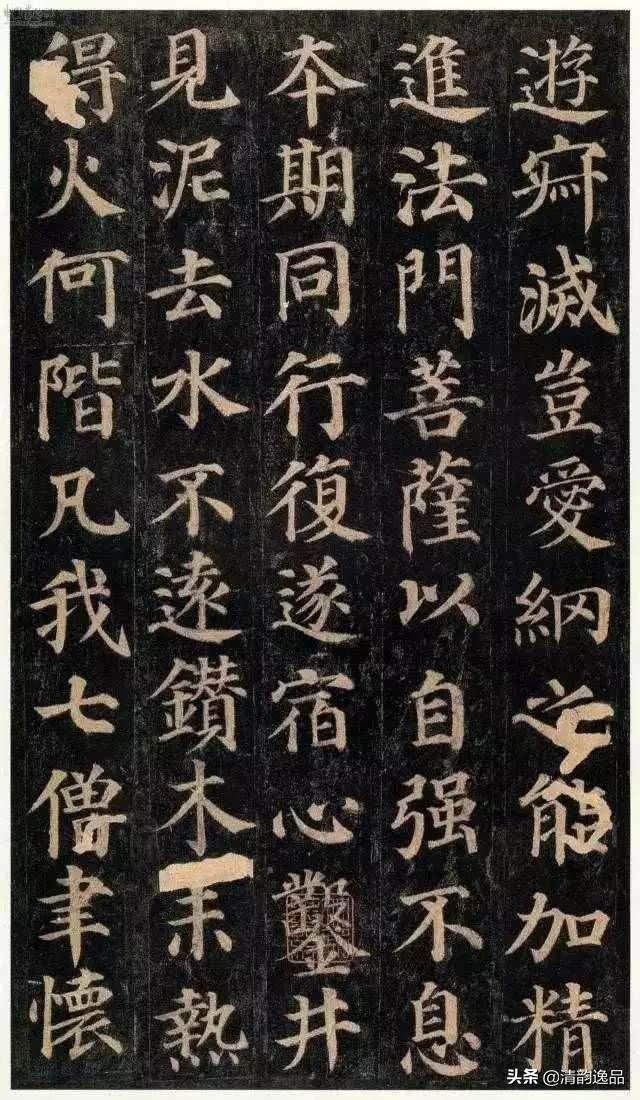 遊寂滅豈愛網之能加精
進法門菩薩以自强不息
本期同行復遂宿心鑿井
見泥去水不遠鑽木未熱
得火何階凡我七僧聿懷
头条 @清韵逸品